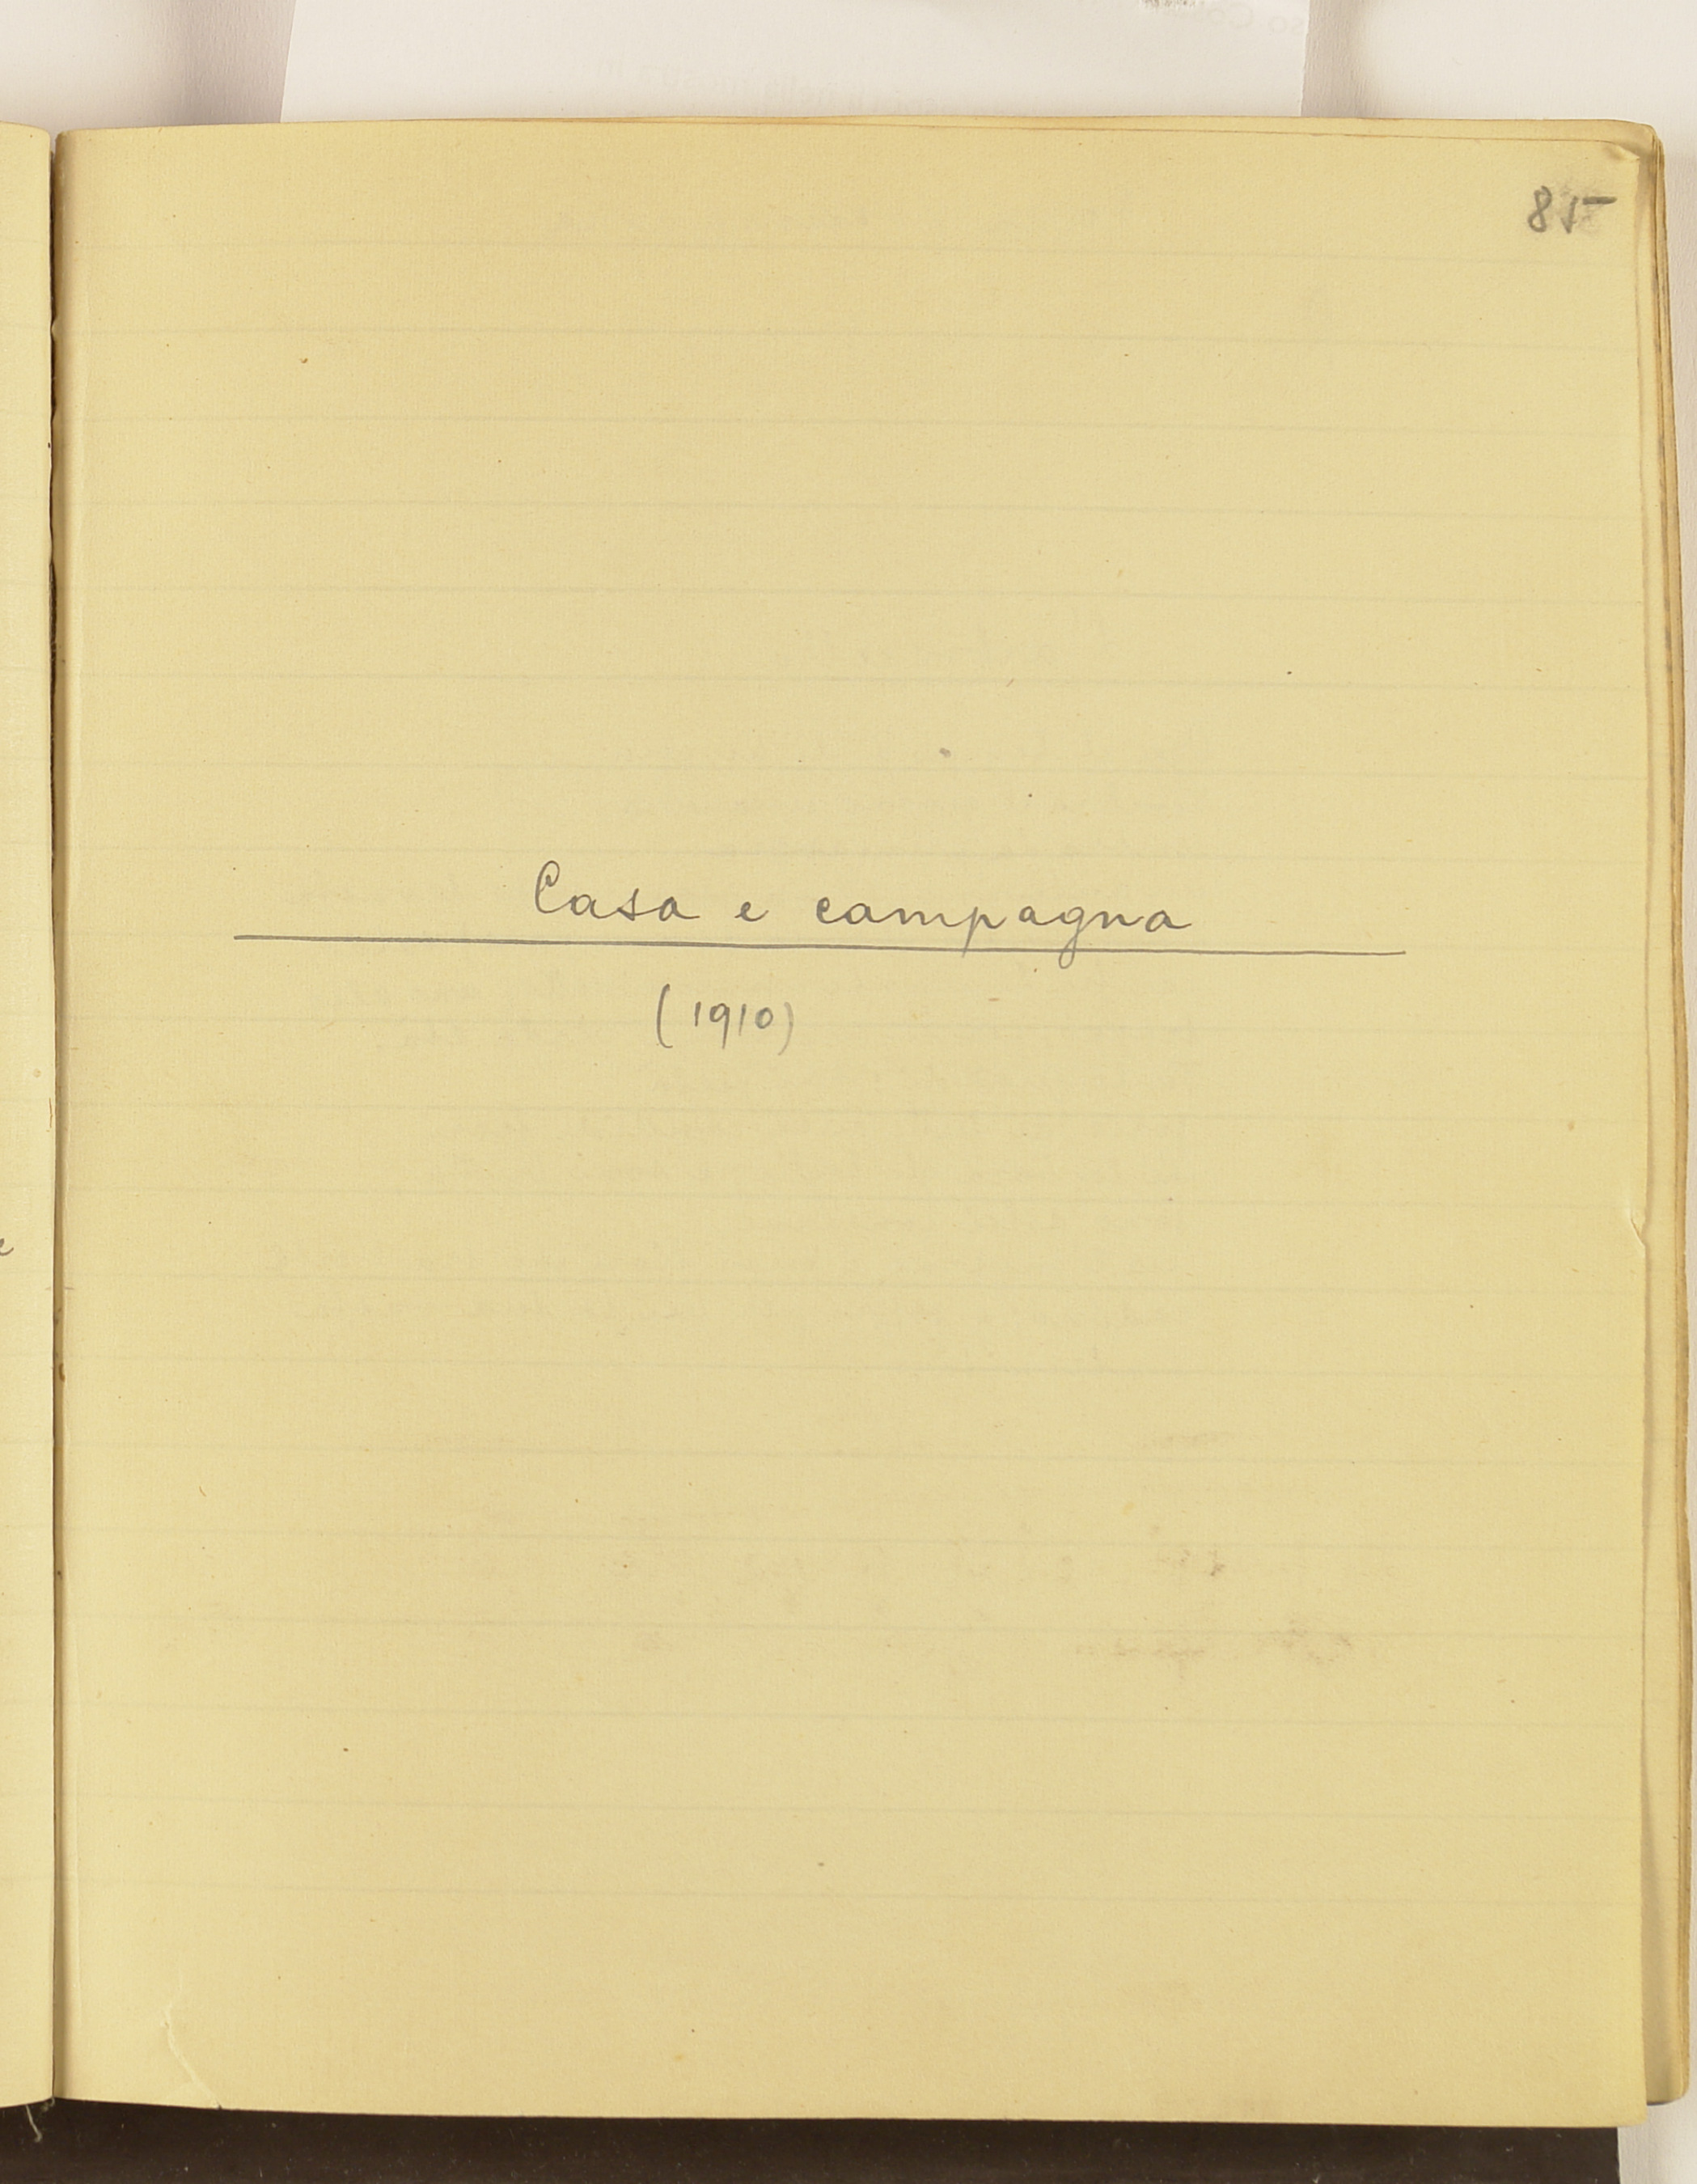 85
Casa e campagna
(1910)